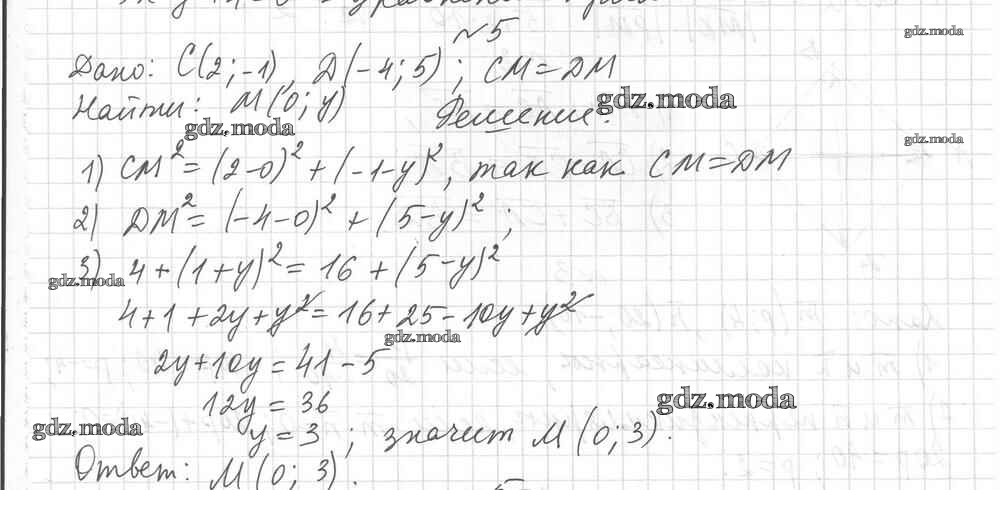 gdz.moda
№5
Дано: C(2;-1), D(-4;5); CM=DM
Найти: M(0; y)
Решение:
gdz.moda
gdz.moda
gdz.moda
1) CM²=(2-0)²+(-1-y)², так как CM=DM
2) DM²=(-4-0)²+(5-y)²;
3) 4+(1+y)²=16+(5-y)²
gdz.moda
4+1+2y+y²=16+25-10y+y²
gdz.moda
2y+10y=41-5
12y=36
gdz.moda
gdz.moda
y=3; значит M(0;3).
Ответ: M(0; 3).